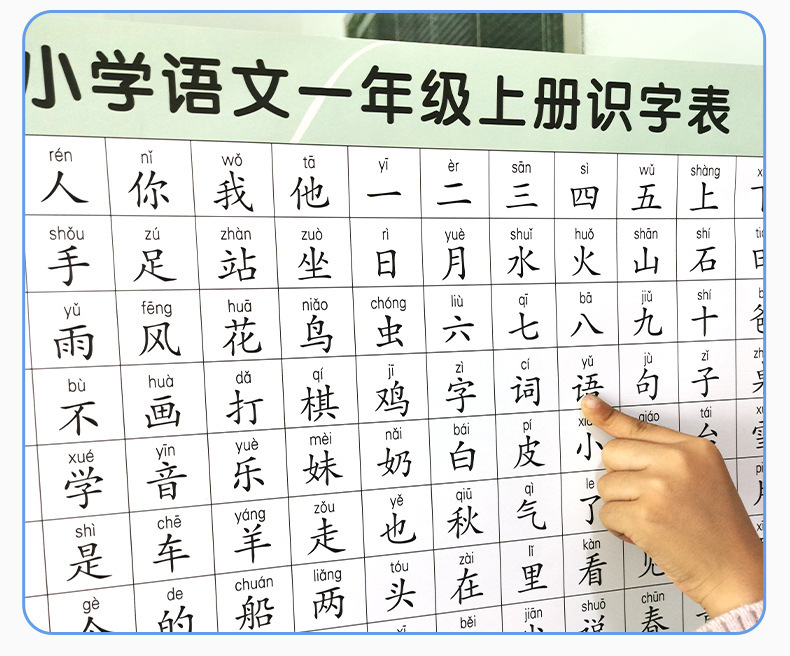 小学语文一年级上册识字表
rén nǐ wǒ tā yī èr sān sì wǔ shàng
人 你 我 他 一 二 三 四 五 上
shǒu zú zhàn zuò rì yuè shuǐ huǒ shān shí
手 足 站 坐 日 月 水 火 山 石
yǔ fēng huā niǎo chóng liù qī bā jiǔ shí
雨 风 花 鸟 虫 六 七 八 九 十
bù huà dǎ qí jī zì cí yǔ jù zǐ
不 画 打 棋 鸡 字 词 语 句 子
xué yīn yuè mèi nǎi bái pí qiáo tái
学 音 乐 妹 奶 白 皮 小 台
shì chē yáng zǒu yě qiū qì le
是 车 羊 走 也 秋 气 了
gè de chuán liǎng tóu zài lǐ kàn
个 的 船 两 头 在 里 看 见
běi jiān shuō chūn
说 春